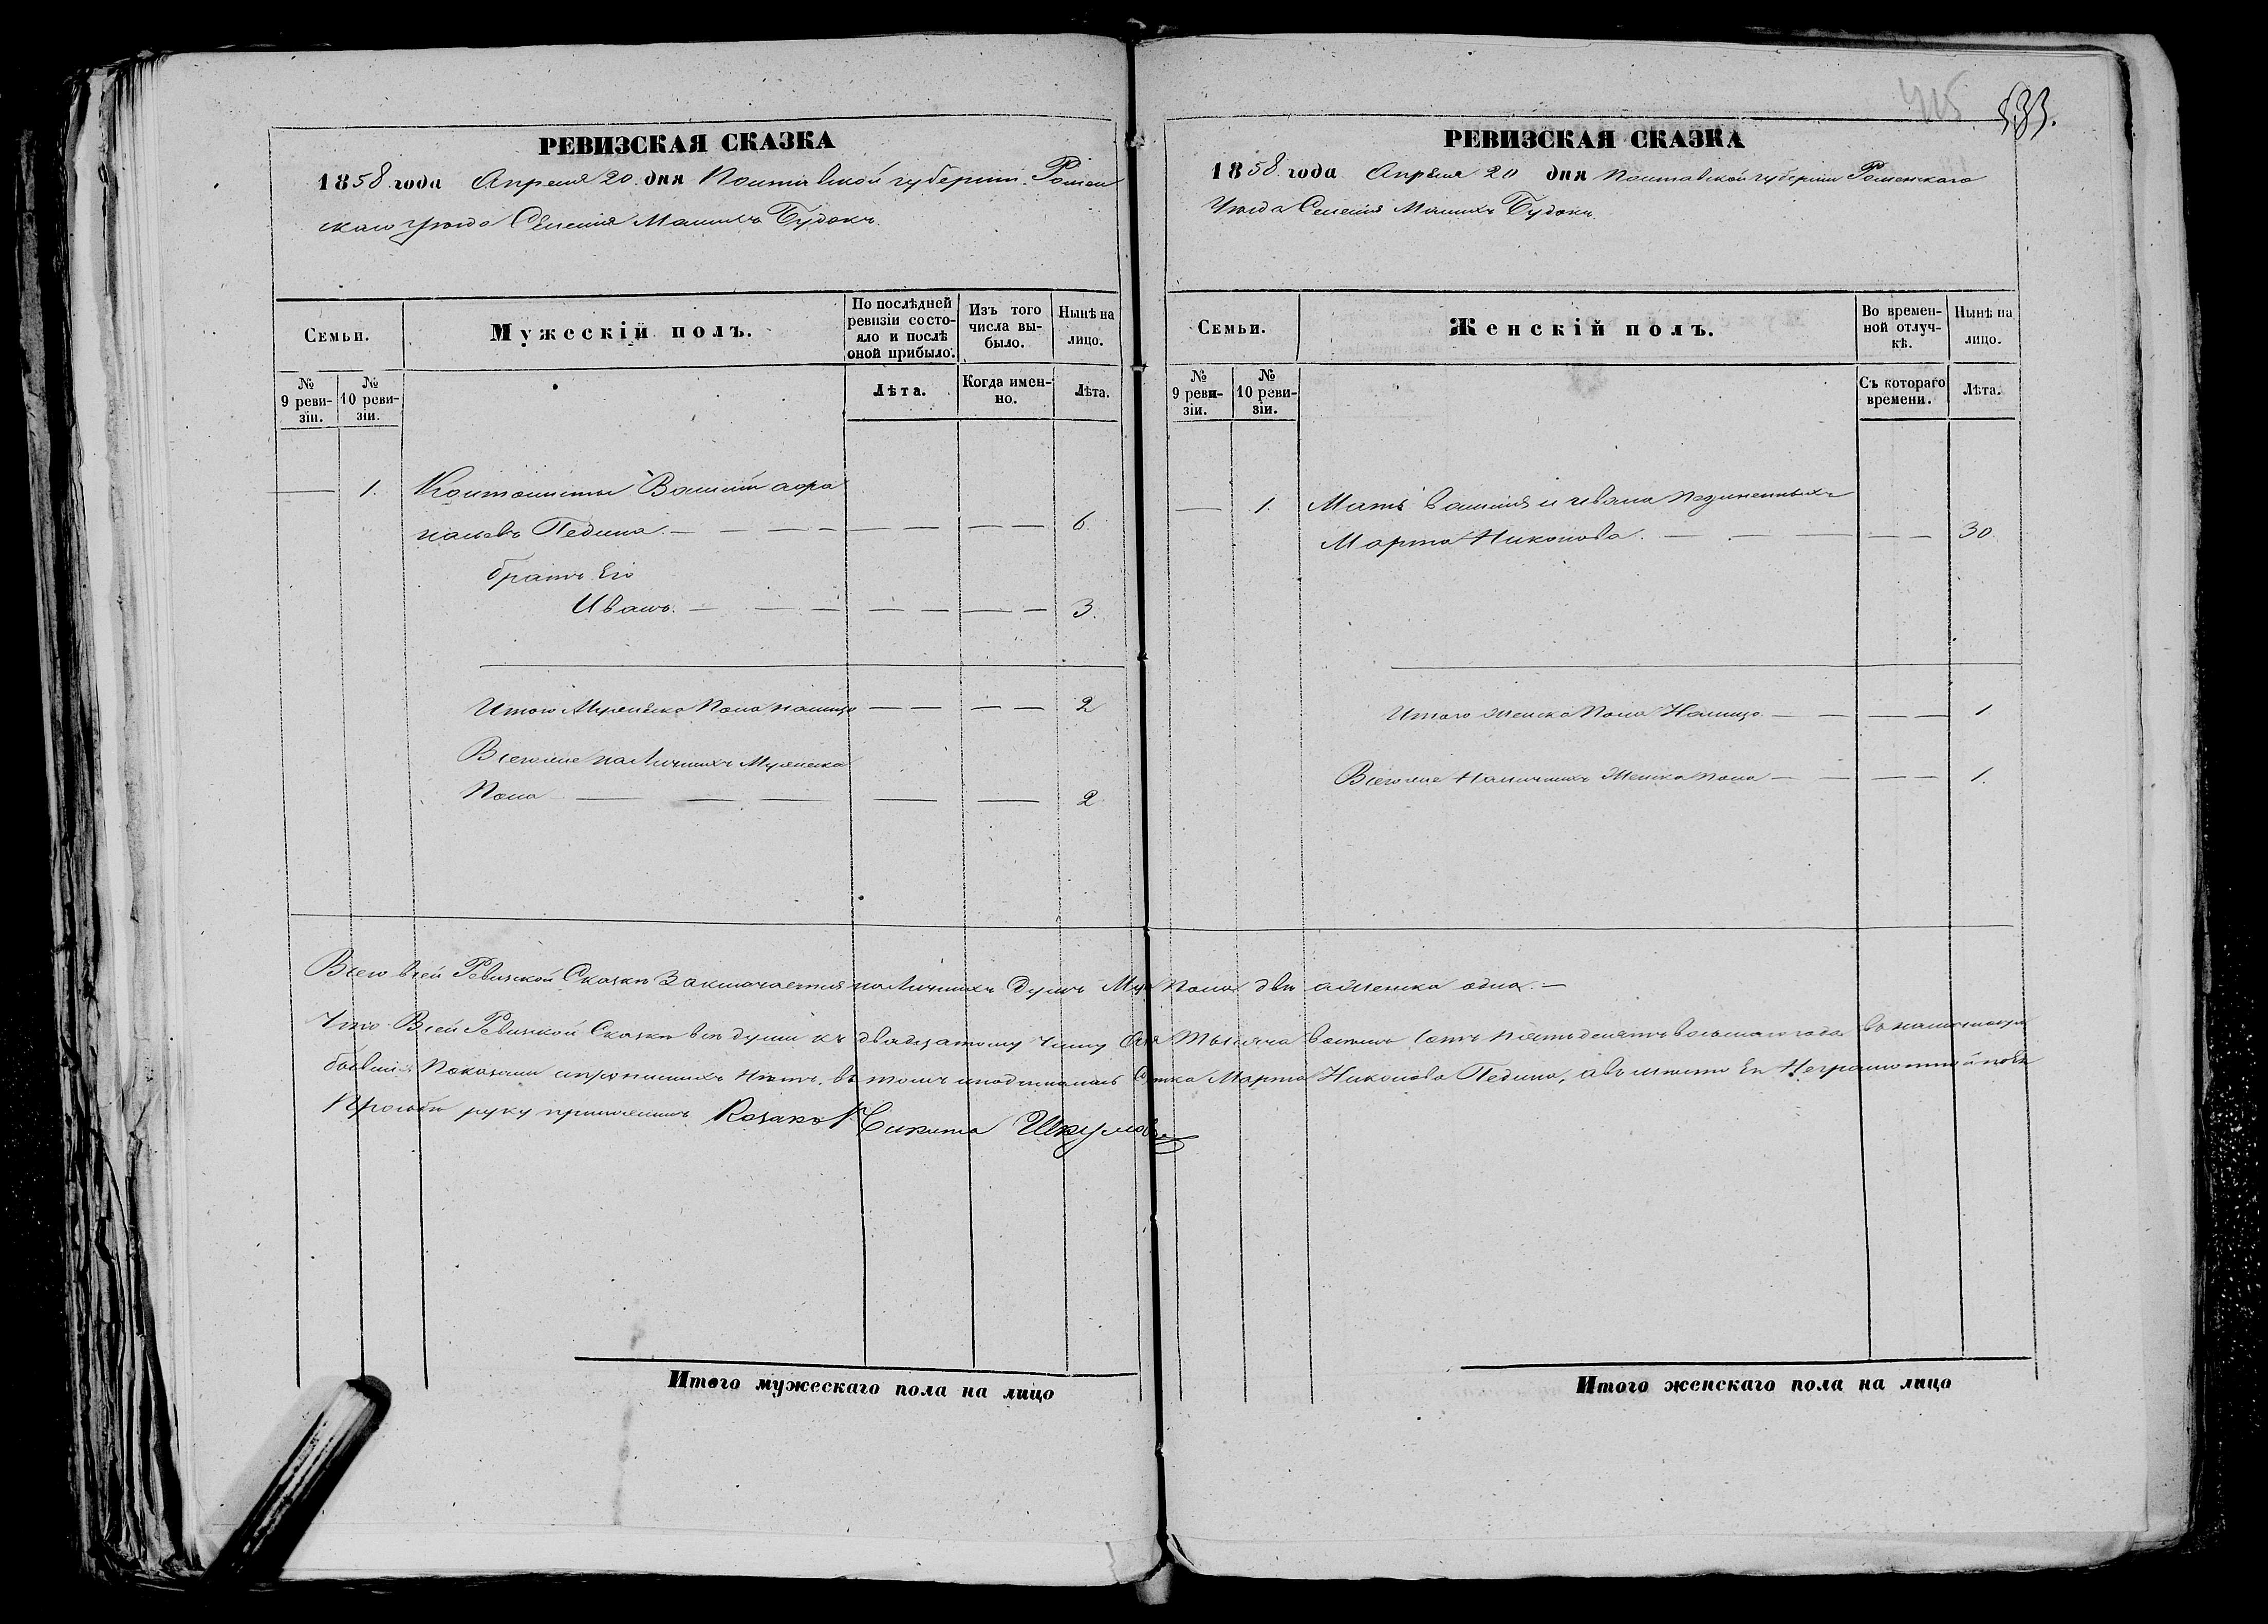 415
533.
РЕВИЗСКАЯ СКАЗКА
1858 года Апреля 20 дня Полтавской губернии Ромен
скаго уезда Селенія Малыхъ Будокъ.
Семьи.
Мужескій полъ.
По послѣдней ревизіи состо-
яло и послѣ
оной прибыло.
Изъ того
числа вы-
было.
Нынѣ на
лицо.
№
9 реви-
зіи.
№
10 реви-
зіи.
Лѣта.
Когда имен-
но.
Лѣта.
1.
Василій
Педина. 6
братъ Его
Иванъ. 3.
Итого Мужеска Пола налицо 2
Всего наличныхъ Мужеска
Пола 2
РЕВИЗСКАЯ СКАЗКА
1858 года Апрѣля 20 дня Полтавской губерніи Роменскаго
Уезда Селенія Малыхъ Будокъ.
Семьи.
Женскій полъ.
Во времен-
ной отлуч-
кѣ.
Нынѣ на
лицо.
№
9 реви-
зіи.
№
10 реви-
зіи.
Съ котораго
времени.
Лѣта.
1.
Мать Василія и Ивана Пединенныхъ
Марта Никонова. 30.
Итого Женска Пола Налицо 1
Всего Наличныхъ Женска пола 1.
Всего въ сей Ревизской Сказке Заключается наличныхъ душъ Муж Пола две а Женска одна.
Что в сей Ревизской Сказке все души къ двадцатому числу Тысяча восемь сотъ пятьдесятъ восьмаго года
Показаны и прописныхъ нетъ. въ томъ и подписалась Марта Никонова Педина, а вместо Ея Неграмотной по Ея
Прозьбе руку приложилъ Козакъ Никита
Итого мужескаго пола на лицо
Итого женскаго пола на лицо